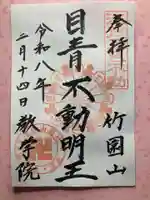 奉拝
竹園山
目青不動明王
令和八年
二月十四日
教学院